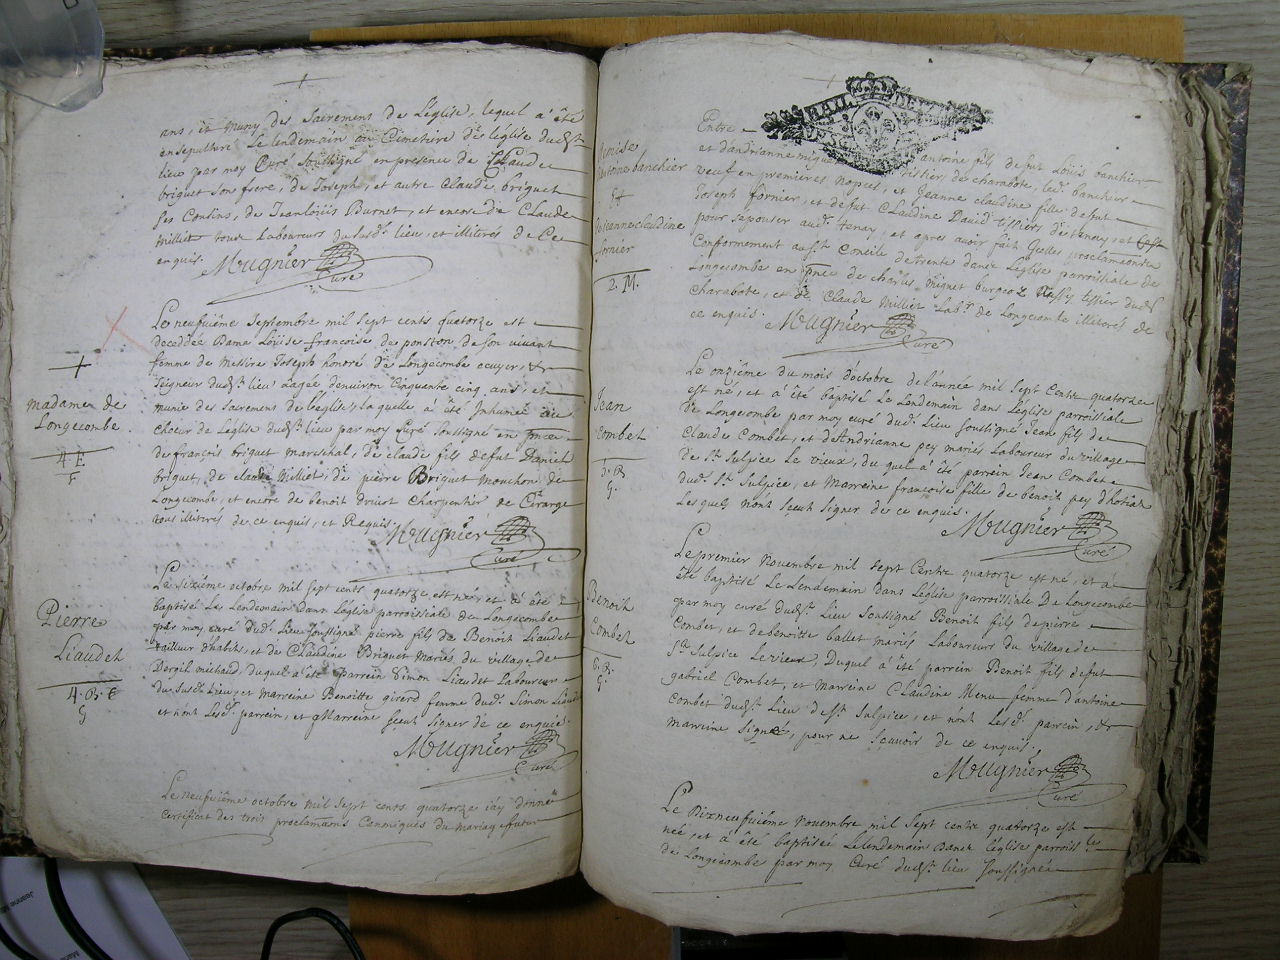 ans, et muny des Sacremens de L'église, lequel a été
ensepulturé Le lendemain au Cimetiere de l'eglise dudt
lieu par moy Curé Soussigné en presence de Claude
briguet son frere, de Joseph, et autre Claude briguet
ses Cousins, de Jean loüis Burnet, et encore de Claude
milliet tous Laboureurs du susd. lieu, et illiterés de Ce
enquis. Mugnier
Curé
Le neufviéme Septembre mil sept cents quatorze est
decedée Dame Loüise francoise de poncton de son vivant
femme de Messire Joseph honoré de Longecombe ecuyer, &
Seigneur dudt. lieu agée d'environ Cinquante cinq ans, et
munie des Sacremens de l'eglise, laquelle a été Inhumée au
Chœur de L'église dudt. lieu par moy Curé Soussigné en pnce
de françois briguet marechal, de claude fils de fut Daniel
briguet, de claude Milliet, de pierre Briguet mouchon de
Longecombe, et encore de benoit druet Charpentier de
tous illiterés de ce enquis, et Requis. Mugnier
Curé
madame de
Longecombe
4 E
F
Le sixiéme octobre mil sept cents quatorze, est né, et a été
baptisé Le Lendemain dans L'eglise parroissiale de Longecombe
par moy curé dud. Lieu soussigné pierre fils de Benoit Liaudet
tailleur d'habits, et de Claudine Briguet mariés du village de
Dergil michaud, duquel a été parrein Simon Liaudet Laboureur
du susd. Lieu, et marreine Benoitte girerd femme dud. Simon Liaudet
et n'ont Lesd. parrein, et Marreine sçeut signer de ce enquis.
Mugnier
Curé
Pierre
Liaudet
4. B. E
G
Le neufviéme octobre mil sept cents quatorze j'ay donné
certificat des trois proclamaons Canoniques du mariage futur
Entre antoine fils de fut Loüis banchier
et d'andrianne tissier de charabote, led. banchier
veuf en premieres nopces, et Jeanne claudine fille de fut
Joseph fornier, et de fut Claudine David tissiers d'estenay, et
pour s'epouser aud. tenay, et apres avoir fait Quelles proclamaons
Conformement au st Concile de trente dans L'eglise parroissiale de
Longecombe en pnce de charles miguet burgeoz tissier dudt
Charabote, et de Claude Milliet Labr. de Longecombe illiterés de
ce enquis. Mugnier
Curé
Remise,
Antoine banchier
Et
Jeanne claudine
fornier
2. M.
Le onziéme du mois d'octobre de l'année mil sept Cents quatorze
est né, et a été baptisé Le Lendemain dans L'eglise parroissiale
de Longecombe par moy curé dud. Lieu soussigné Jean fils de
Claude Combet, et d'Andrianne pey mariés Laboureur du village
de St. Sulpice Le vieux, du quel a été parrein Jean Combet
dud. St. Sulpice, et Marreine francoise fille de benoit pey d'hostiat
Lesquels n'ont sçeut signer de ce enquis.
Mugnier
Curé
Jean
Combet
G.
Le premier Novembre mil sept Cents quatorze est né, et a
été baptisé Le Lendemain dans L'eglise parroissiale De Longecombe
par moy curé dudt. Lieu soussigné Benoit fils de pierre
Combet, et de benoitte ballet mariés Laboureurs du village de
St. Sulpice Le vieux, Duquel a été parrein Benoit fils de fut
gabriel Combet, et Marreine Claudine Menu femme d'antoine
Combet dudt. Lieu de St. Sulpice, et n'ont Lesd. parrein, &
Marreine signés, pour ne sçavoir de ce enquis.
Mugnier
Curé
Benoit
Combet
G.
Le Dixneufviéme Novembre mil sept Cents quatorze est
née, et a été baptisée Le Lendemain Dans L'église parroiss.le
de Longecombe par moy Curé dudt. Lieu soussigné